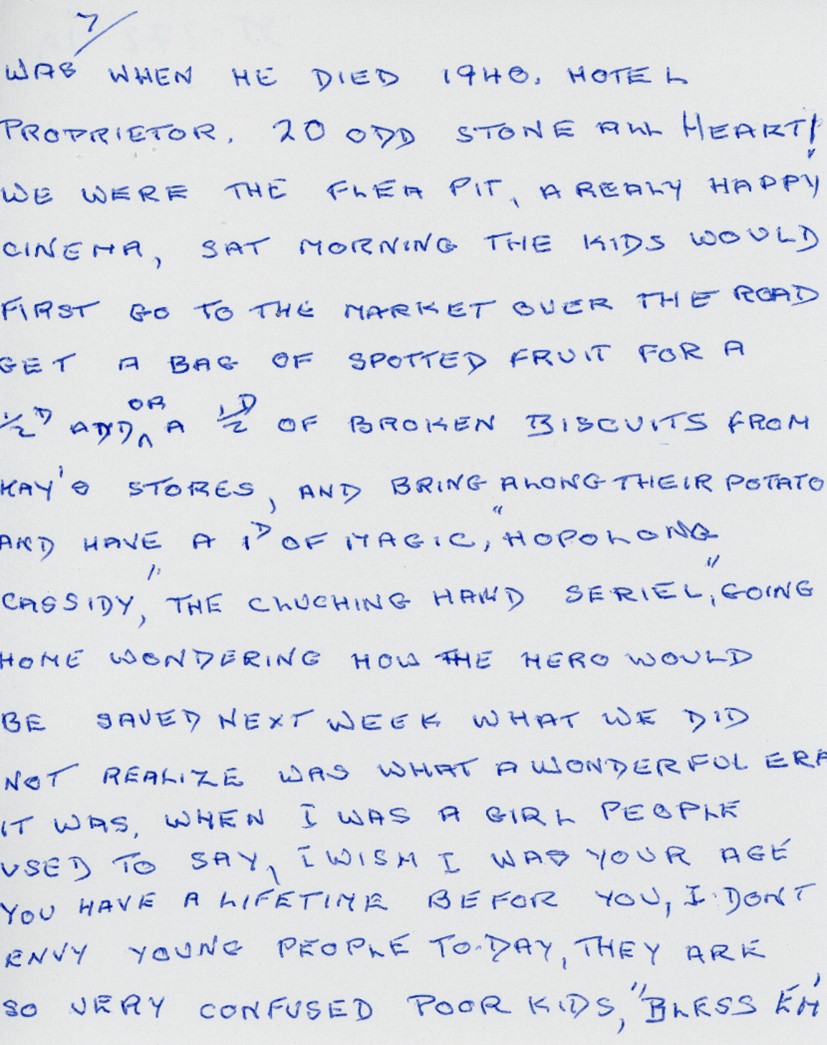 7/
WAS WHEN HE DIED 1940. HOTEL
PROPRIETOR. 20 ODD STONE ALL HEART!
WE WERE THE FLEA PIT, A REALY HAPPY
CINEMA, SAT MORNING THE KIDS WOULD
FIRST GO TO THE MARKET OVER THE ROAD
GET A BAG OF SPOTTED FRUIT FOR A
1/2D ADD OR A 1/2D OF BROKEN BISCUITS FROM
KAY'S STORES, AND BRING ALONG THEIR POTATO
AND HAVE A 1D OF MAGIC, "HOPOLONG
CASSIDY", THE CLUCHING HAND SERIEL", GOING
HOME WONDERING HOW THE HERO WOULD
BE SAVED NEXT WEEK WHAT WE DID
NOT REALIZE WAS WHAT A WONDERFUL ERA
IT WAS, WHEN I WAS A GIRL PEOPLE
USED TO SAY, I WISH I WAS YOUR AGE
YOU HAVE A LIFETIME BEFOR YOU, I DON'T
ENVY YOUNG PEOPLE TO-DAY, THEY ARE
SO VERY CONFUSED POOR KIDS, "BLESS EM'